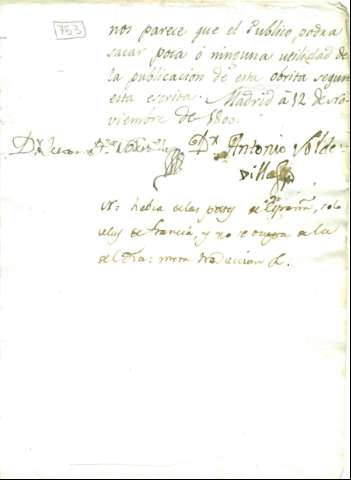 753
nos parece que el Publico podra
sacar poca ó ninguna utilidad de
la publicacion de esta obrita segun
esta escrita. Madrid á 12 de No-
viembre de 1800.
Dn. Dn. Antonio Valde-
villa
No habia de las de España, solo
de Francia, y no se de la
del Dia: mera traduccion &.